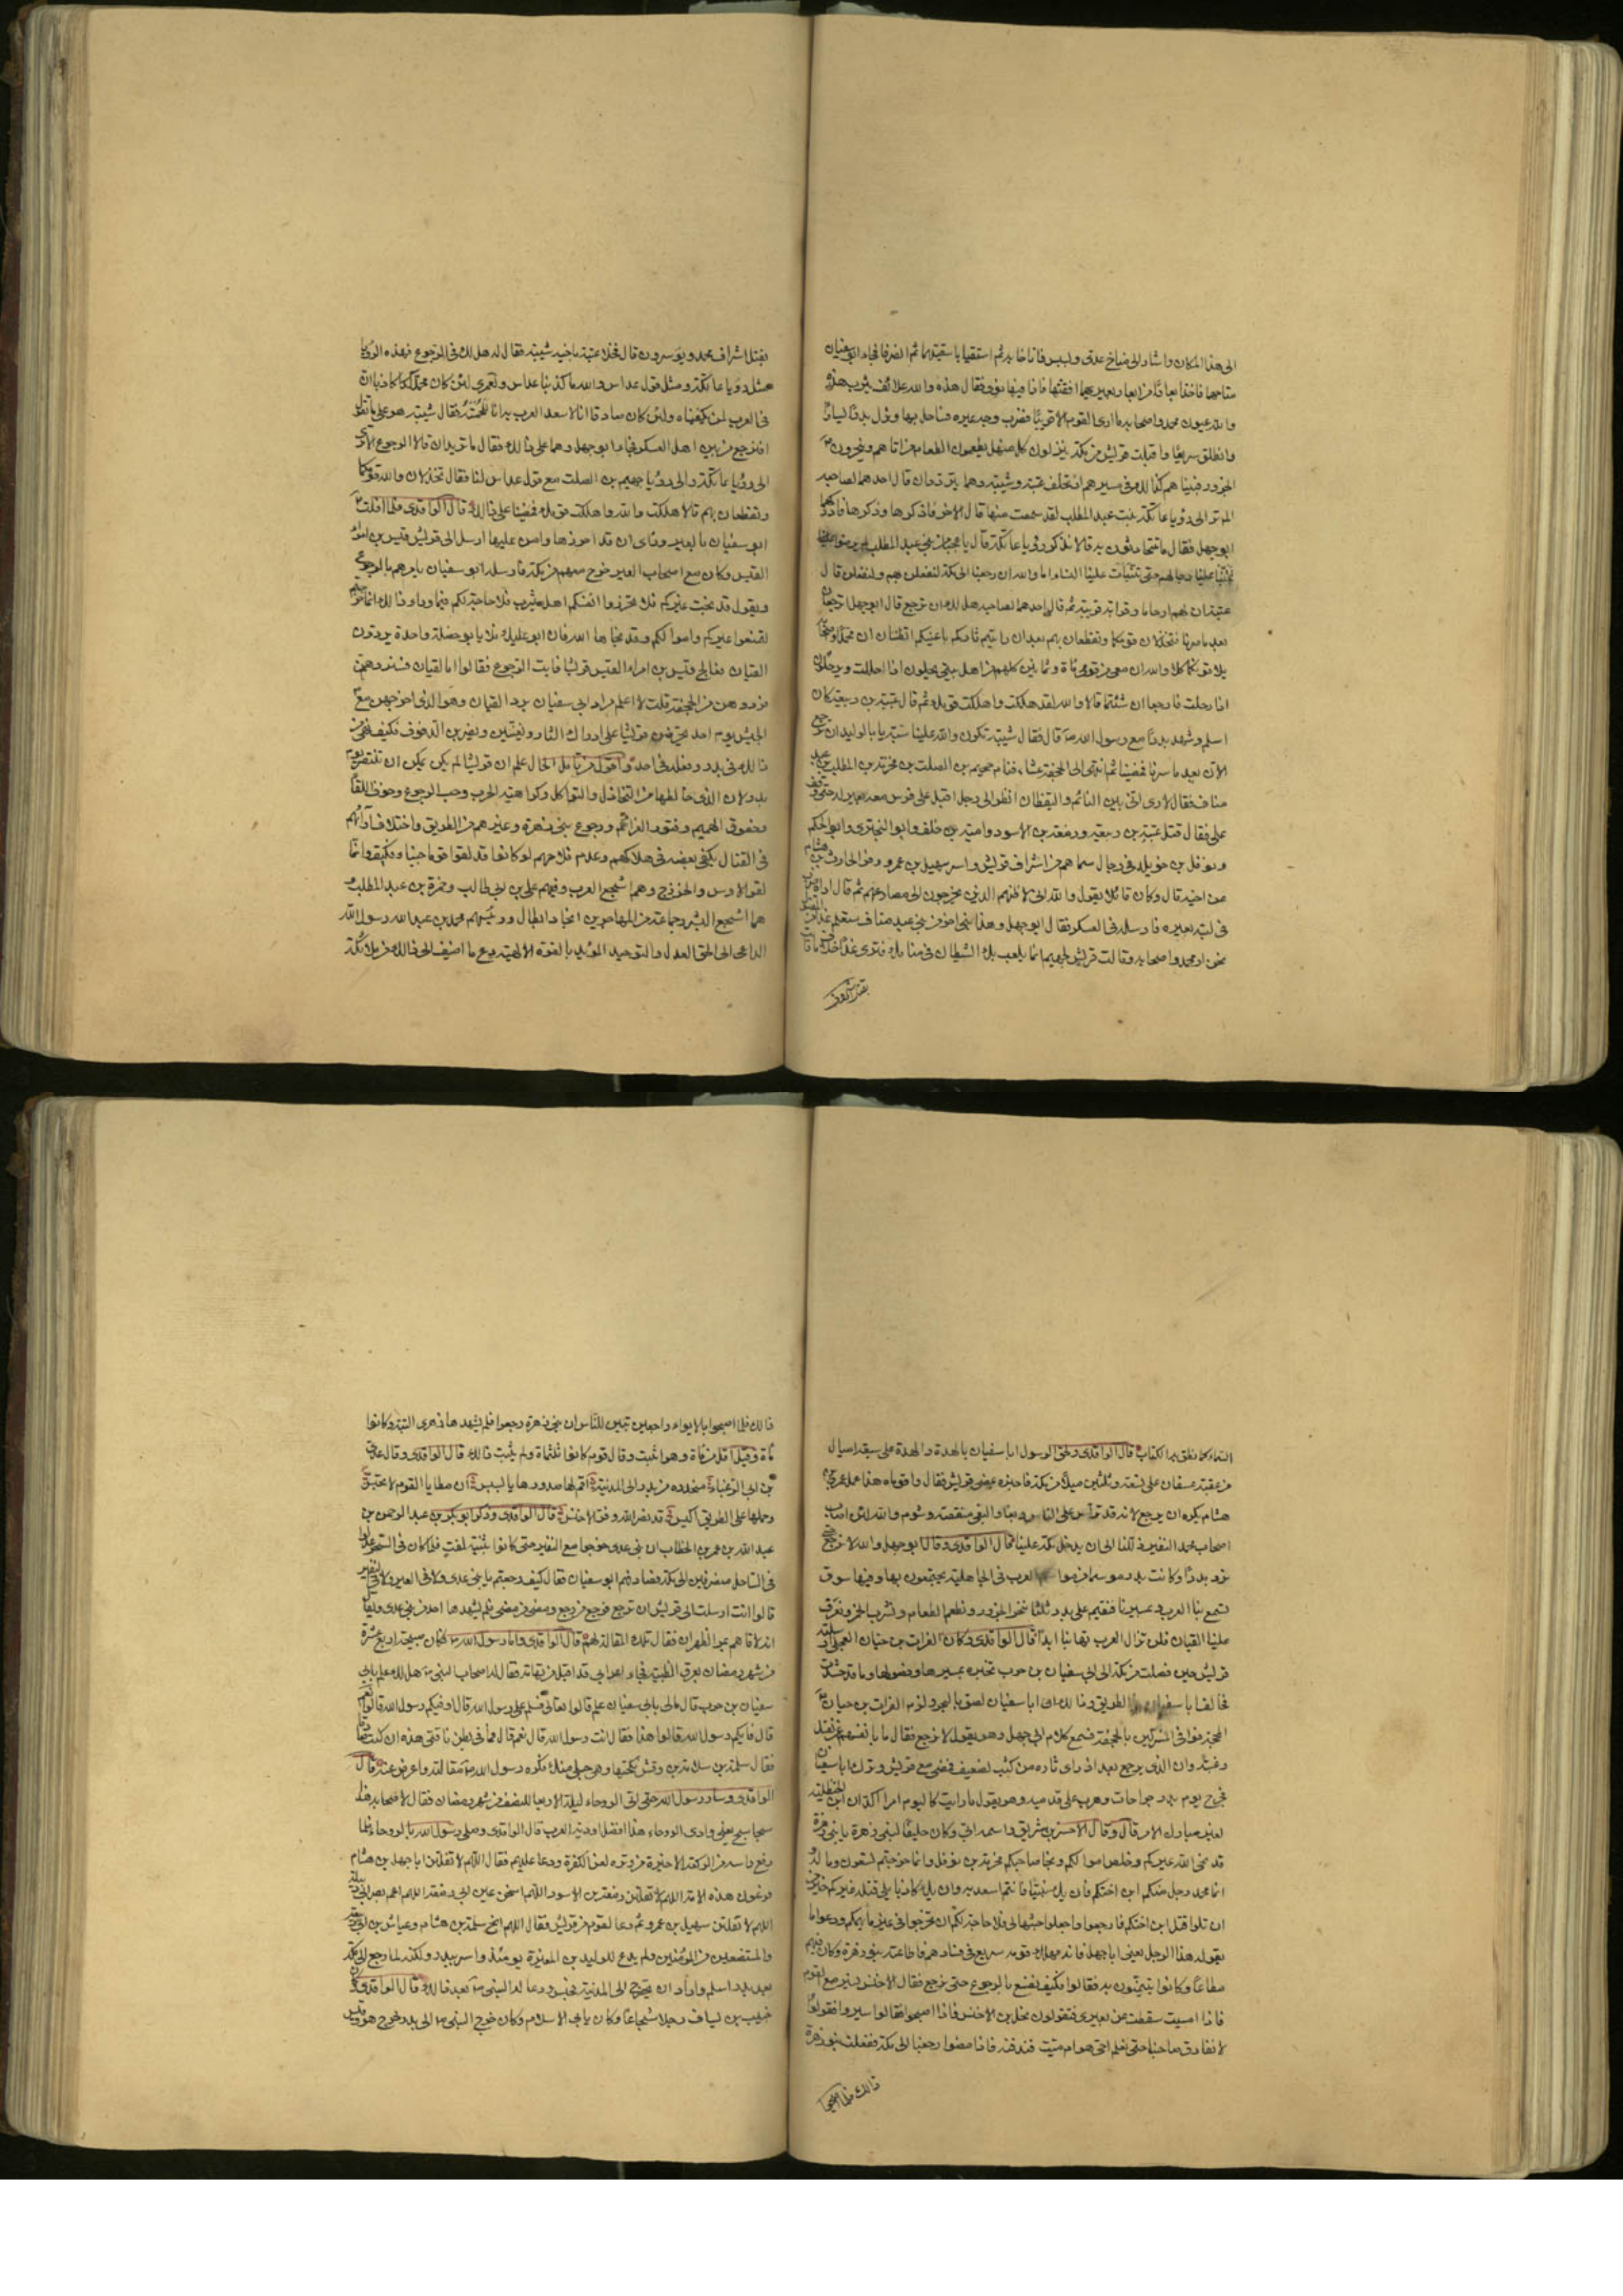 الى هذا المكان واشار الى مناخ عدى وبسبس فاناخا به ثم استقيا باسقيتهما ثم انصرفا فجاء ابو سفيان
مناخهما فاخذ ابعارا من ابعار بعيريهما ففتها فاذا فيها نوى فقال هذه والله علائف يثرب هذه
والله عيون محمد واصحابه ما ارى القوم الا قريبًا فضرب وجه عيره فساحل بها وترك بدرًا يسارًا
وانطلق سريعًا واقبلت قريش من مكة ينزلون كل منهل يطعمون الطعام من اتاهم وينحرون
الجزور فبينا هم كذلك فى مسيرهم اذ تخلف عتبة وشيبة وهما يترددان قال احدهما لصاحبه
الم تر الى رؤيا عاتكة بنت عبد المطلب لقد خشيت منها قال الاخر فاذكرها وذكرها فادركهما
ابو جهل فقال ما تتحادثون به قالا نذكر رؤيا عاتكة قال يا عجبا من بنى عبد المطلب لم يرضوا
تتنبأ علينا رجالهم حتى تنبأت علينا النساء اما والله ان رجعنا الى مكة لنفعلن بهم ولنفعلن قال
عتبة ان لهم ارحاما وقرابة قريبة ثم قال احدهما لصاحبه هل لك ان ترجع قال ابو جهل اترجعان
بعد ما سرنا فتخذلان قومكما وتقطعان بهم بعد ان رايتم ثاركم باعينكم اتظنان ان محمدًا واصحابه
يلاقونكما كلا والله ان معى من قومى مأة وثمانين كلهم من اهل بيتى يحلون اذا احللت ويرحلون
اذا رحلت فارجعا ان شئتما قالا والله لقد هلكت واهلكت قومك ثم قال عتبة بن ربيعة كان
اسلم وشهد بدرًا مع رسول الله ص قال فقال شيبة تكون والله علينا سبة يا ابا الوليد ان نرجع
الآن بعد ما سرنا فمضينا ثم انتهى الى الجحفة عشاء فنام جهيم بن الصلت بن مخرمة بن المطلب بن عبد
مناف فقال لارى انى بين النائم واليقظان انظر الى رجل اقبل على فرس معه بعير له حتى وقف
على فقال قتل عتبة بن ربيعة وزمعة بن الاسود وامية بن خلف وابو البخترى وابو الحكم
ونوفل بن خويلد فى رجال سماهم من اشراف قريش واسر سهيل بن عمرو وفر الحارث بن هشام
عن اخيه قال وكان قائلا يقول والله انى لاظنهم الذين يخرجون الى مصارعهم ثم قال اراه ضرب
فى لبة بعيره فارسله فى العسكر فقال ابو جهل وهذا نبى اخر من بنى عبد مناف ستعلم غدا من المقتول
نحن او محمد واصحابه وقالت قريش لجهيم انما يلعب بك الشيطان فى منامك فترى غدًا خلاف ما رأيت
بقتل اشراف
بقتل اشراف محمد ويؤسرون قال فخلا عتبة باخيه شيبة فقال له هل لك فى الرجوع فهذه الرؤيا
مثل رؤيا عاتكة ومثل قول عداس والله ما كذبنا عداس ولعمرى لئن كان محمد كاذبا ان
فى العرب لمن يكفيناه ولئن كان صادقا انا لاسعد العرب به انا للحمته فقال شيبة هو على ما تقول
افنرجع من بين اهل العسكر فجاء ابو جهل وهما على ذلك فقال ما تريدان قالا الرجوع الا ترى
الى رؤيا عاتكة والى رؤيا جهيم بن الصلت مع قول عداس لنا فقال تخذلان والله قومكما
وتقطعان بهم قالا هلكت والله واهلكت قومك فمضيا على ذلك قال الواقدى فلما افلت
ابو سفيان بالعير وراى ان قد احرزها وامن عليها ارسل الى قريش قيس بن امرئ
القيس وكان مع اصحاب العير خرج معهم من مكة فارسله ابو سفيان يامرهم بالرجوع
ويقول قد نجت عيركم فلا تحرزوا انفسكم اهل يثرب فلا حاجة لكم فيما وراء ذلك انما خرجتم
لتمنعوا عيركم واموالكم وقد نجاها الله فان ابو عليك فلا يابو خصلة واحدة يردون
القيان فعالج قيس بن امرء القيس قريشا فابت الرجوع فقالوا اما القيان فسنردهن
فردوهن من الجحفة قلت لا اعلم مراد ابى سفيان برد القيان وهو الذى اخرجهن مع
الجيش يوم احد يحرضن قريشا على ادراك الثار ويغنين ويضربن الدفوف فكيف نهى عن
ذلك فى بدر وفعله فى احد واقول من تأمل الحال علم ان قريشا لم يكن يمكن ان تنتصر يوم
بدر لان الذى خالطها من التخاذل والتواكل وكراهية الحرب وحب الرجوع وخوف اللقاء
وخفوق الهمم وفتور العزائم ورجوع بنى زهرة وغيرهم من الطريق واختلاف آرائهم
فى القتال يكفى بعضه فى هلاكهم وعدم فلاحهم لو كانوا قد لقوا قوما جبنا فكيف وانما
لقوا الاوس والخزرج وهم اشجع العرب وفيهم على بن ابى طالب وحمزة بن عبد المطلب و
هما اشجع البشر وجماعة من المهاجرين انجاد ابطال ورئيسهم محمد بن عبد الله رسول الله
الداعى الى الحق والعدل والتوحيد المؤيد بالقوة الالهية دع ما اضيف الى ذلك من ملائكة
السماء كما نطق به الكتاب قال الواقدى ولحق الرسول ابا سفيان بالهدة والهدة على سبعة اميال
من عقبة عسفان على تسعة وثلثين ميلا من مكة فاخبره بمضى قريش فقال واقوماه هذا عمل عمرو بن
هشام يكره ان يرجع لانه قد ترأس على الناس وبغى والبغى منقصة وشوم والله لئن اصاب
اصحاب محمد النفير ذللنا الى ان يدخل مكة علينا قال الواقدى وقال ابو جهل والله لا نرجع حتى
نرد بدرًا وكانت بدر موسما من مواسم العرب فى الجاهلية يجتمعون بها وفيها سوق
تسمع بنا العرب وبمسيرنا فنقيم على بدر ثلثا ننحر الجزور ونطعم الطعام ونشرب الخمر وتعزف
علينا القيان فلن تزال العرب تهابنا ابدًا قال الواقدى وكان الفرات بن حيان العجلى ارسلته
قريش حين فصلت من مكة الى ابى سفيان بن حرب تخبره بمسيرها وفصولها وما قد حشدت
فخالف ابا سفيان فى الطريق وذلك ان ابا سفيان لصق بالبحر ولزم الفرات بن حيان
المحجة فوافى المشركين بالجحفة فسمع كلام ابى جهل وهو يقول لا نرجع فقال ما بانفسهم عن نفسك
رغبة وان الذى يرجع بعد ان راى ثاره من كثب لضعيف فمضى مع قريش وترك ابا سفيان
فجرح يوم بدر جراحات وهرب على قدميه وهو يقول ما رايت كاليوم امرا انكد ان ابن الحنظلية
لغير مبارك الامر قال وقال الاخنس بن شريق واسمه ابى وكان حليفًا لبنى زهرة يا بنى زهرة
قد نجى الله عيركم وخلص اموالكم ونجا صاحبكم مخرمة بن نوفل وانما خرجتم لتمنعوه وماله
انما محمد رجل منكم ابن اختكم فان يك نبيًا فانتم اسعد به وان يك كاذبا يلى قتله غيركم خير من
ان تلوا قتل ابن اختكم فارجعوا واجعلوا جبنها لى فلا حاجة لكم ان تخرجوا فى غير ما يهمكم ودعوا ما
يقوله هذا الرجل يعنى ابا جهل فانه مهلك قومه سريع فى فسادهم فاطاعته بنو زهرة وكان فيهم
مطاعًا وكانوا يتيمنون به فقالوا فكيف نصنع بالرجوع حتى نرجع فقال الاخنس نسير مع القوم
فاذا امسيت سقطت عن بعيرى فتقولون نهل بن الاخنس فاذا اصبحوا فقالوا سيروا فقولوا
لا نفارق صاحبنا حتى نعلم احى هو ام ميت فندفنه فاذا مضوا رجعنا الى مكة ففعلت بنو زهرة
ذلك فلما اصبحوا
ذلك فلما اصبحوا بالابواء راجعين تبين للناس ان بنى زهرة رجعوا فلم يشهدها زهرى البتة وكانوا
مأة وقيل اقل من مأة وهو اثبت وقال قوم كانوا ثلثمأة ولم يثبت ذلك قال الواقدى وقال عدى
بن ابى الزغباء منحدره من بدر الى المدينة اقم لها صدورها يا بسبس ان مطايا القوم لا تحبس
وحملها على الطريق اكيس قد نصر الله وفر الاخنس قال الواقدى وذكر ابو بكر بن عبد الرحمن بن
عبد الله بن عمر بن الخطاب ان بنى عدى خرجوا مع النفير حتى كانوا بثنية لفت فلما كان فى السحر عدلوا
فى الساحل منصرفين الى مكة فصادفهم ابو سفيان فقال كيف رجعتم يا بنى عدى ولا فى العير ولا فى النفير
قالوا انت ارسلت الى قريش ان ترجع فرجع من رجع ومضى من مضى فلم يشهدها احد من بنى عدى ويقال
انه لاقاهم بمر الظهران فقال تلك المقالة لهم قال الواقدى واما رسول الله ص فكان صبيحة اربع عشرة
من شهر رمضان بعرق الظبية فجاء اعرابى قد اقبل من تهامة فقال له اصحاب النبى ص هل لك علم بابى
سفيان بن حرب قال مالى بابى سفيان علم قالوا تعال فسلم على رسول الله قال اوفيكم رسول الله قالوا نعم
قال فايكم رسول الله قالوا هذا فقال انت رسول الله قال نعم قال فما فى بطن ناقتى هذه ان كنت صادقا
فقال سلمة بن سلامة بن وقش نكحتها وهى حبلى منك فكره رسول الله ص مقالته واعرض عنه قال
الواقدى وسار رسول الله حتى اتى الروحاء ليلة الاربعا للنصف من شهر رمضان فقال لاصحابه هذا
سجاسج يعنى وادى الروحاء هذا افضل اودية العرب قال الواقدى وصلى رسول الله بالروحاء فلما
رفع راسه من الركعة الاخيرة من وتره لعن الكفرة ودعا عليهم فقال اللهم لا تفلتن ابا جهل بن هشام
فرعون هذه الامة اللهم لا تفلتن زمعة بن الاسود اللهم اسخن عين ابى زمعة اللهم اعم بصر ابى زمعة
اللهم لا تفلتن سهيل بن عمرو ثم دعا لقوم من قريش فقال اللهم انج سلمة بن هشام وعياش بن ابى ربيعة
والمستضعفين من المؤمنين ولم يدع للوليد بن المغيرة يومئذ واسر ببدر ولكنه لما رجع الى مكة
بعد بدر اسلم واراد ان يخرج الى المدينة فحبس ودعا له النبى ص بعد ذلك قال الواقدى وكان
خبيب بن يساف رجلا شجاعًا وكان يابى الاسلام وكان خرج النبى ص الى بدر خرج هو وقيس